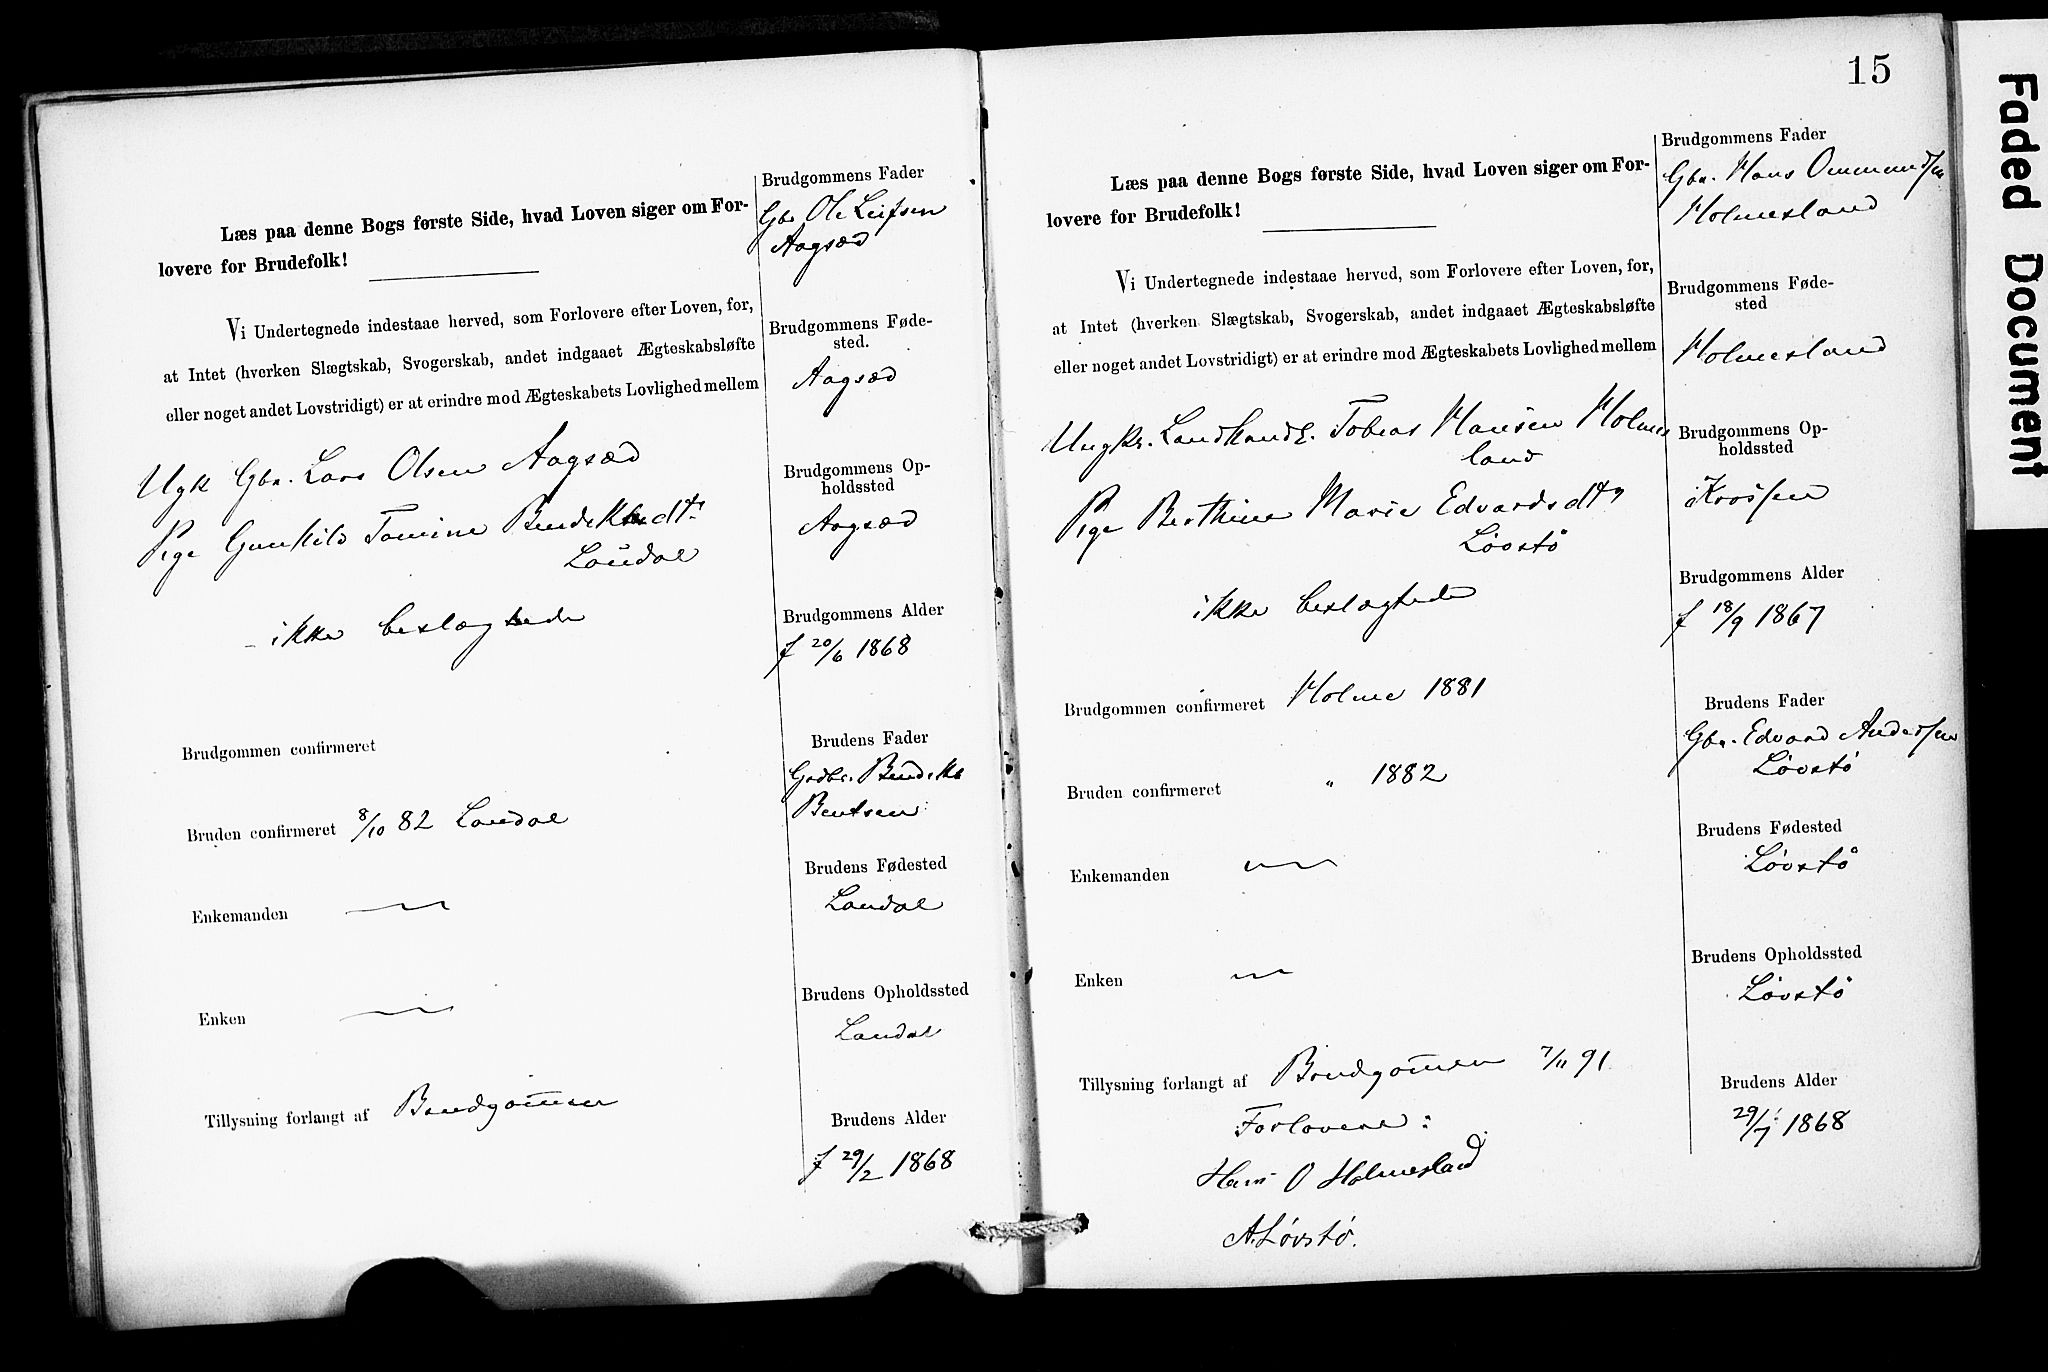 Læs paa denne Bogs første Side, hvad Loven siger om For-
lovere for Brudefolk!
Vi Undertegnede indestaae herved, som Forlovere efter Loven, for,
at Intet (hverken Slægtskab, Svogerskab, andet indgaaet Ægteskabsløfte
eller noget andet Lovstridigt) er at erindre mod Ægteskabets Lovlighed mellem
Ugk Gbr. Lars Olsen Aagsæd
Pige Gunhild Tomine Bendiktsdtr
Laudal
ikke beslægtede
Brudgommen confirmeret
Bruden confirmeret 8/10 82 Laudal
Enkemanden
Enken
Tillysning forlangt af Brudgom̄en
Brudgommens Fader
Gbr Ole Leifsen
Aagsæd
Brudgommens Føde-
sted.
Aagsæd
Brudgommens Op-
holdssted
Aagsæd
Brudgommens Alder
f 20/6 1868
Brudens Fader
Grdbr. Bendikt
Bentsen
Brudens Fødested
Laudal
Brudens Opholdssted
Laudal
Brudens Alder
f 29/2 1868
15
Læs paa denne Bogs første Side, hvad Loven siger om For-
lovere for Brudefolk!
Vi Undertegnede indestaae herved, som Forlovere efter Loven, for,
at Intet (hverken Slægtskab, Svogerskab, andet indgaaet Ægteskabsløfte
eller noget andet Lovstridigt) er at erindre mod Ægteskabets Lovlighed mellem
Ungkr. Landhandl. Tobias Hansen Holmes
land
Pige Berthine Marie Edvardsdtr
Løvstø
ikke beslægtede
Brudgommen confirmeret Holme 1881
Bruden confirmeret " 1882
Enkemanden
Enken
Tillysning forlangt af Brudgom̄en 7/11 91.
Forlovere:
Hans O Holmesland
A. Løvstø.
Brudgommens Fader
Gbr. Hans Ommundsen
Holmesland
Brudgommens Føde-
sted
Holmesland
Brudgommens Op-
holdssted
Krossen
Brudgommens Alder
f 18/9 1867
Brudens Fader
Gbr. Edvard Andersen
Løvstø
Brudens Fødested
Løvstø
Brudens Opholdssted
Løvstø
Brudens Alder
29/7 1868
Faded Document